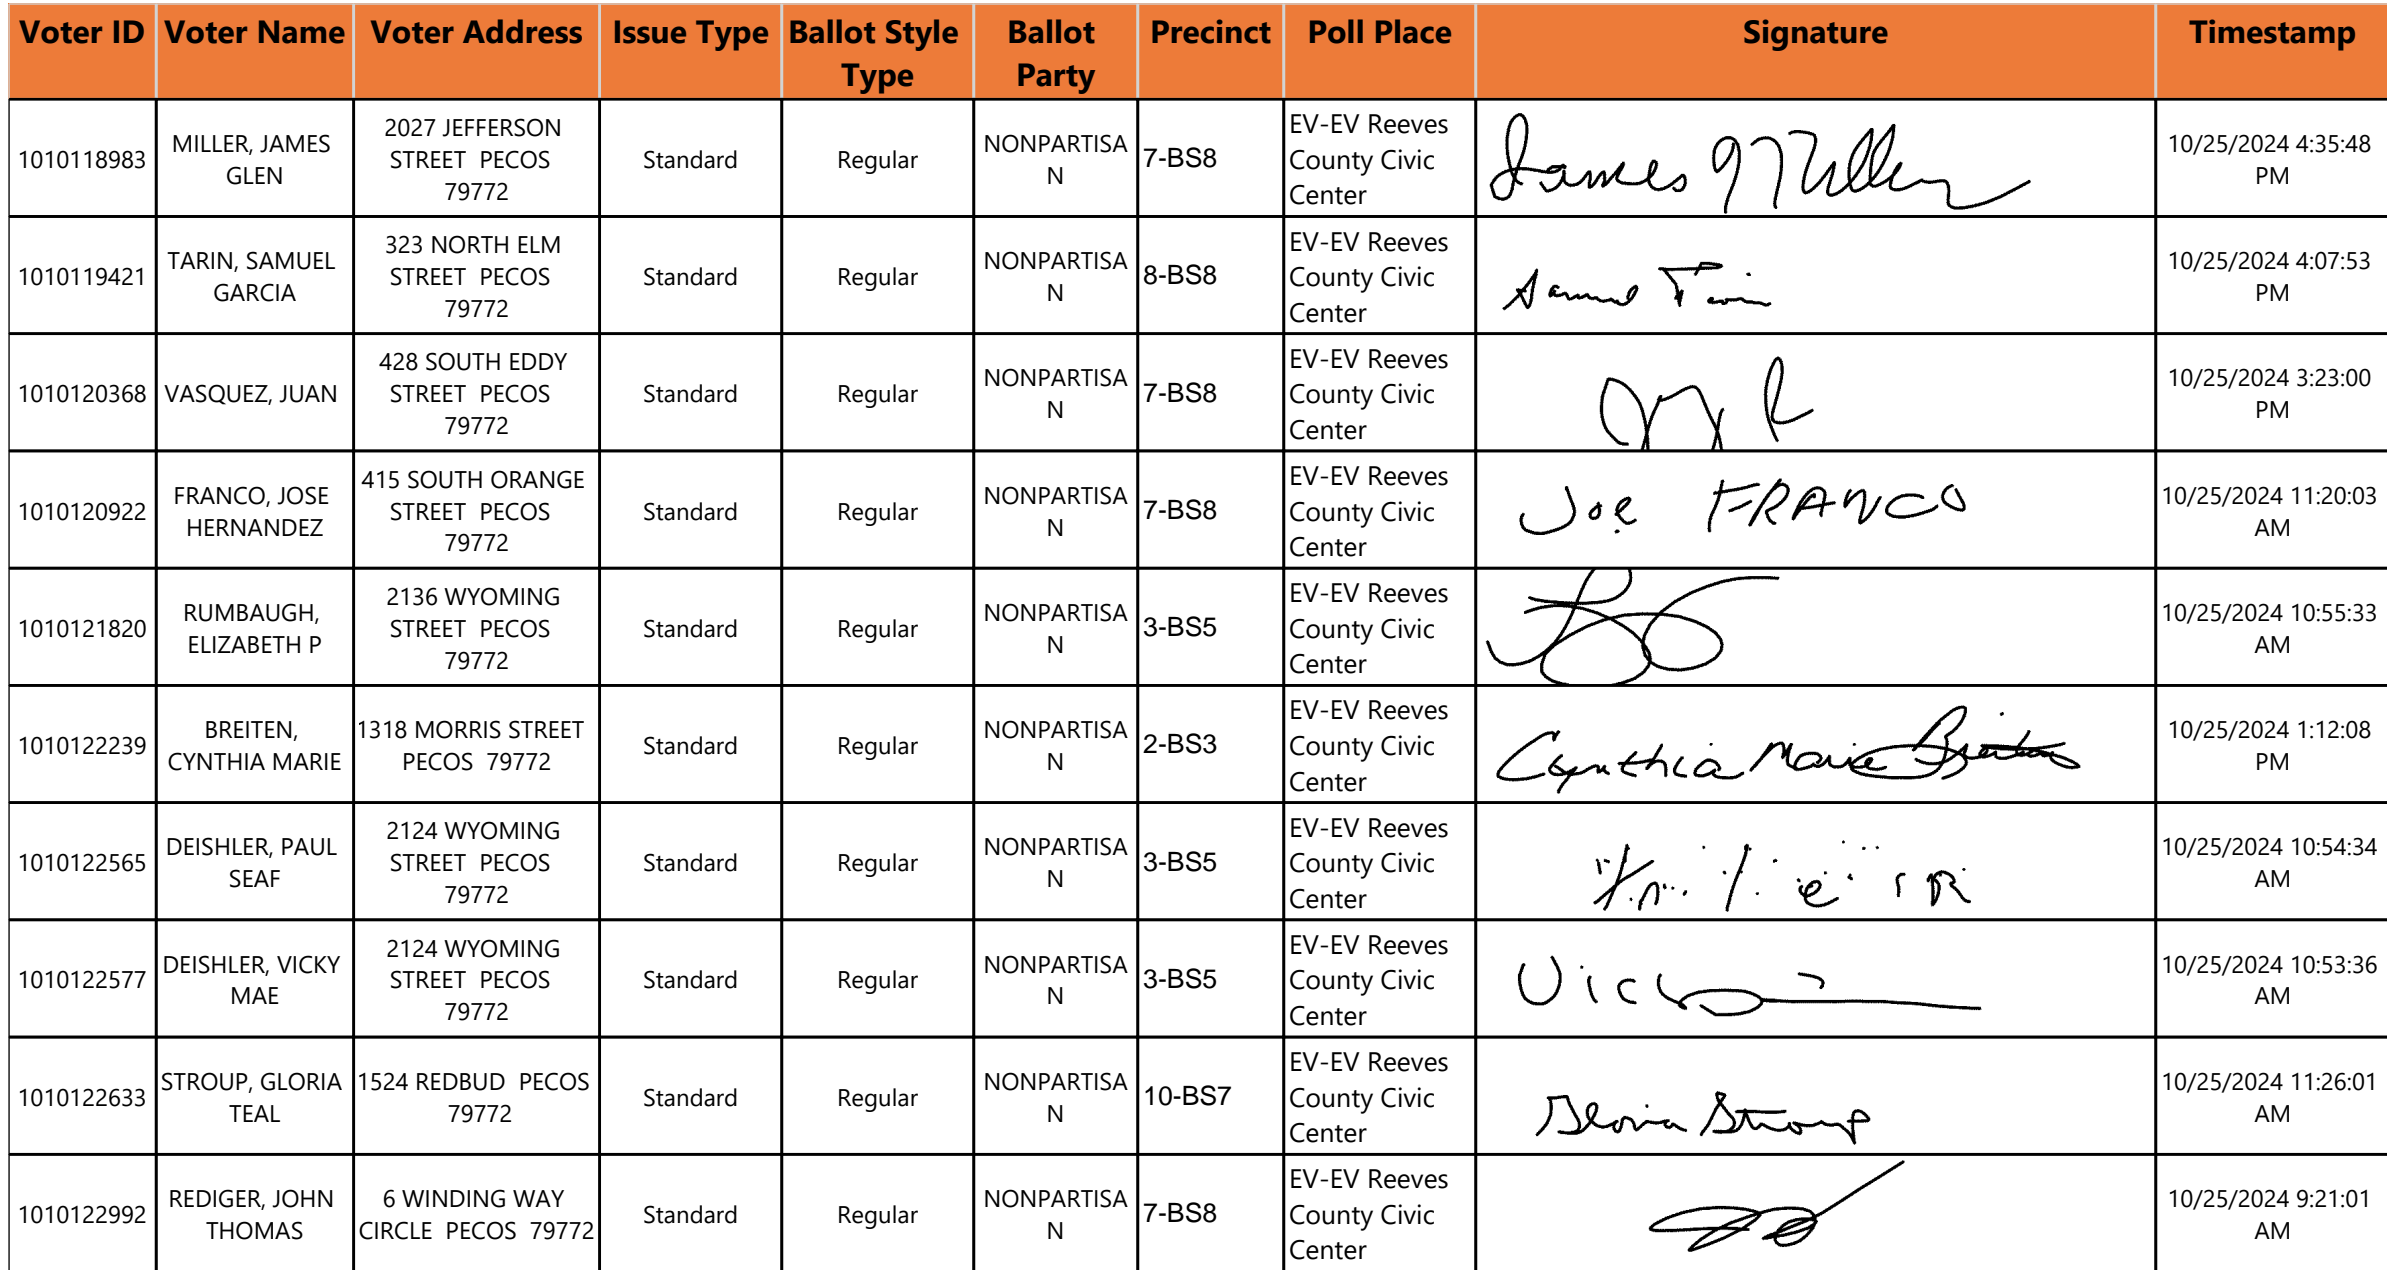 Voter ID Voter Name Voter Address Issue Type Ballot Style Type Ballot Party Precinct Poll Place Signature Timestamp
1010118983 MILLER, JAMES GLEN 2027 JEFFERSON STREET PECOS 79772 Standard Regular NONPARTISAN 7-BS8 EV-EV Reeves County Civic Center James Miller 10/25/2024 4:35:48 PM
1010119421 TARIN, SAMUEL GARCIA 323 NORTH ELM STREET PECOS 79772 Standard Regular NONPARTISAN 8-BS8 EV-EV Reeves County Civic Center Samuel 10/25/2024 4:07:53 PM
1010120368 VASQUEZ, JUAN 428 SOUTH EDDY STREET PECOS 79772 Standard Regular NONPARTISAN 7-BS8 EV-EV Reeves County Civic Center 10/25/2024 3:23:00 PM
1010120922 FRANCO, JOSE HERNANDEZ 415 SOUTH ORANGE STREET PECOS 79772 Standard Regular NONPARTISAN 7-BS8 EV-EV Reeves County Civic Center Joe FRANCO 10/25/2024 11:20:03 AM
1010121820 RUMBAUGH, ELIZABETH P 2136 WYOMING STREET PECOS 79772 Standard Regular NONPARTISAN 3-BS5 EV-EV Reeves County Civic Center 10/25/2024 10:55:33 AM
1010122239 BREITEN, CYNTHIA MARIE 1318 MORRIS STREET PECOS 79772 Standard Regular NONPARTISAN 2-BS3 EV-EV Reeves County Civic Center Cynthia Marie Breiten 10/25/2024 1:12:08 PM
1010122565 DEISHLER, PAUL SEAF 2124 WYOMING STREET PECOS 79772 Standard Regular NONPARTISAN 3-BS5 EV-EV Reeves County Civic Center 10/25/2024 10:54:34 AM
1010122577 DEISHLER, VICKY MAE 2124 WYOMING STREET PECOS 79772 Standard Regular NONPARTISAN 3-BS5 EV-EV Reeves County Civic Center 10/25/2024 10:53:36 AM
1010122633 STROUP, GLORIA TEAL 1524 REDBUD PECOS 79772 Standard Regular NONPARTISAN 10-BS7 EV-EV Reeves County Civic Center Gloria Stroup 10/25/2024 11:26:01 AM
1010122992 REDIGER, JOHN THOMAS 6 WINDING WAY CIRCLE PECOS 79772 Standard Regular NONPARTISAN 7-BS8 EV-EV Reeves County Civic Center 10/25/2024 9:21:01 AM